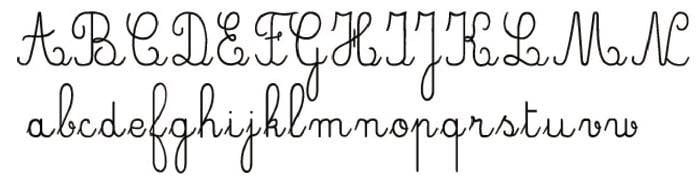 A B C D E F G H I J K L M N
a b c d e f g h i j k l m n o p q r s t u v w